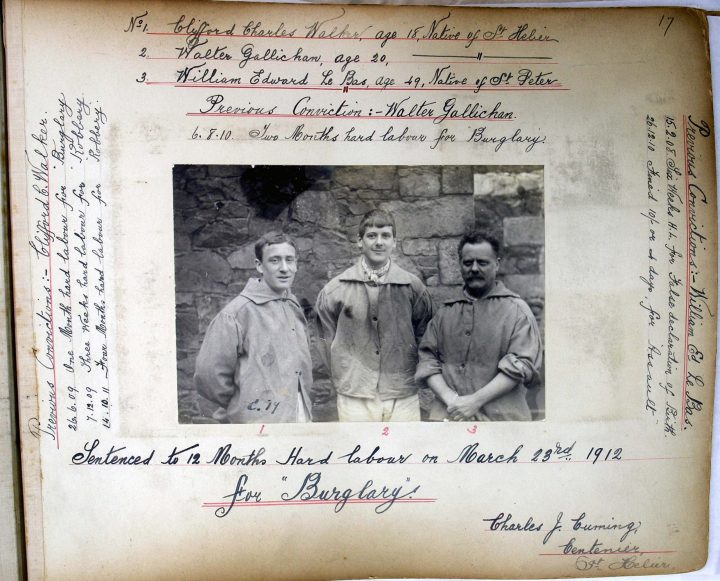 17
No 1. Clifford Charles Walker, age 18, Native of St Helier
2. Walter Gallichan, age 20, — " —
3. William Edward Le Bas, age 49, Native of St Peter
Previous Conviction :- Walter Gallichan.
6.8.10. Two Months hard labour for Burglary.
Previous Convictions :- Clifford C. Walker.
26.6.09 One Month hard labour for Burglary
7.12.09 Three Weeks hard labour for Robbery
14.10.11 Four Months hard labour for Robbery.
Previous Convictions :- William Ed Le Bas.
15.2.08 Six Weeks H.L. for False declaration of Birth.
26.12.10 Fined 10/- or 4 days, for Assault
1 2 3
Sentenced to 12 Months Hard labour on March 23rd 1912
for "Burglary".
Charles J. Cuming,
Centenier,
St Helier,